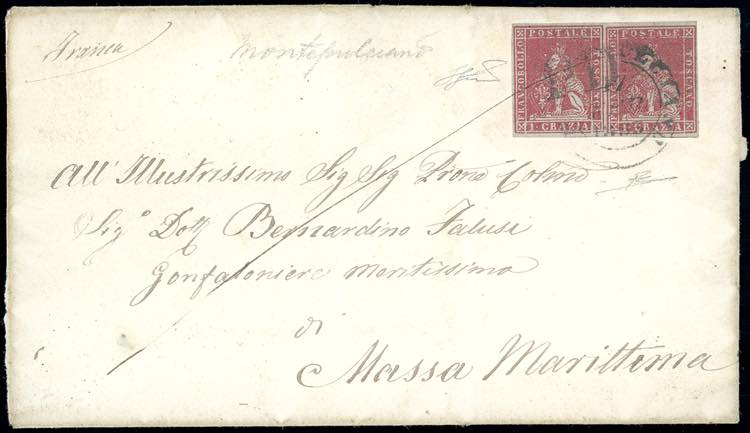 Franca
Montepulciano
FRANCOBOLLO POSTALE TOSCANO 1 GRAZIA
FRANCOBOLLO POSTALE TOSCANO 1 GRAZIA
PD
All' Illustrissimo Sig Sig Prone Colmo
Sig° Dott Bernardino Falusi
Gonfaloniere Meritissimo
di
Massa Marittima